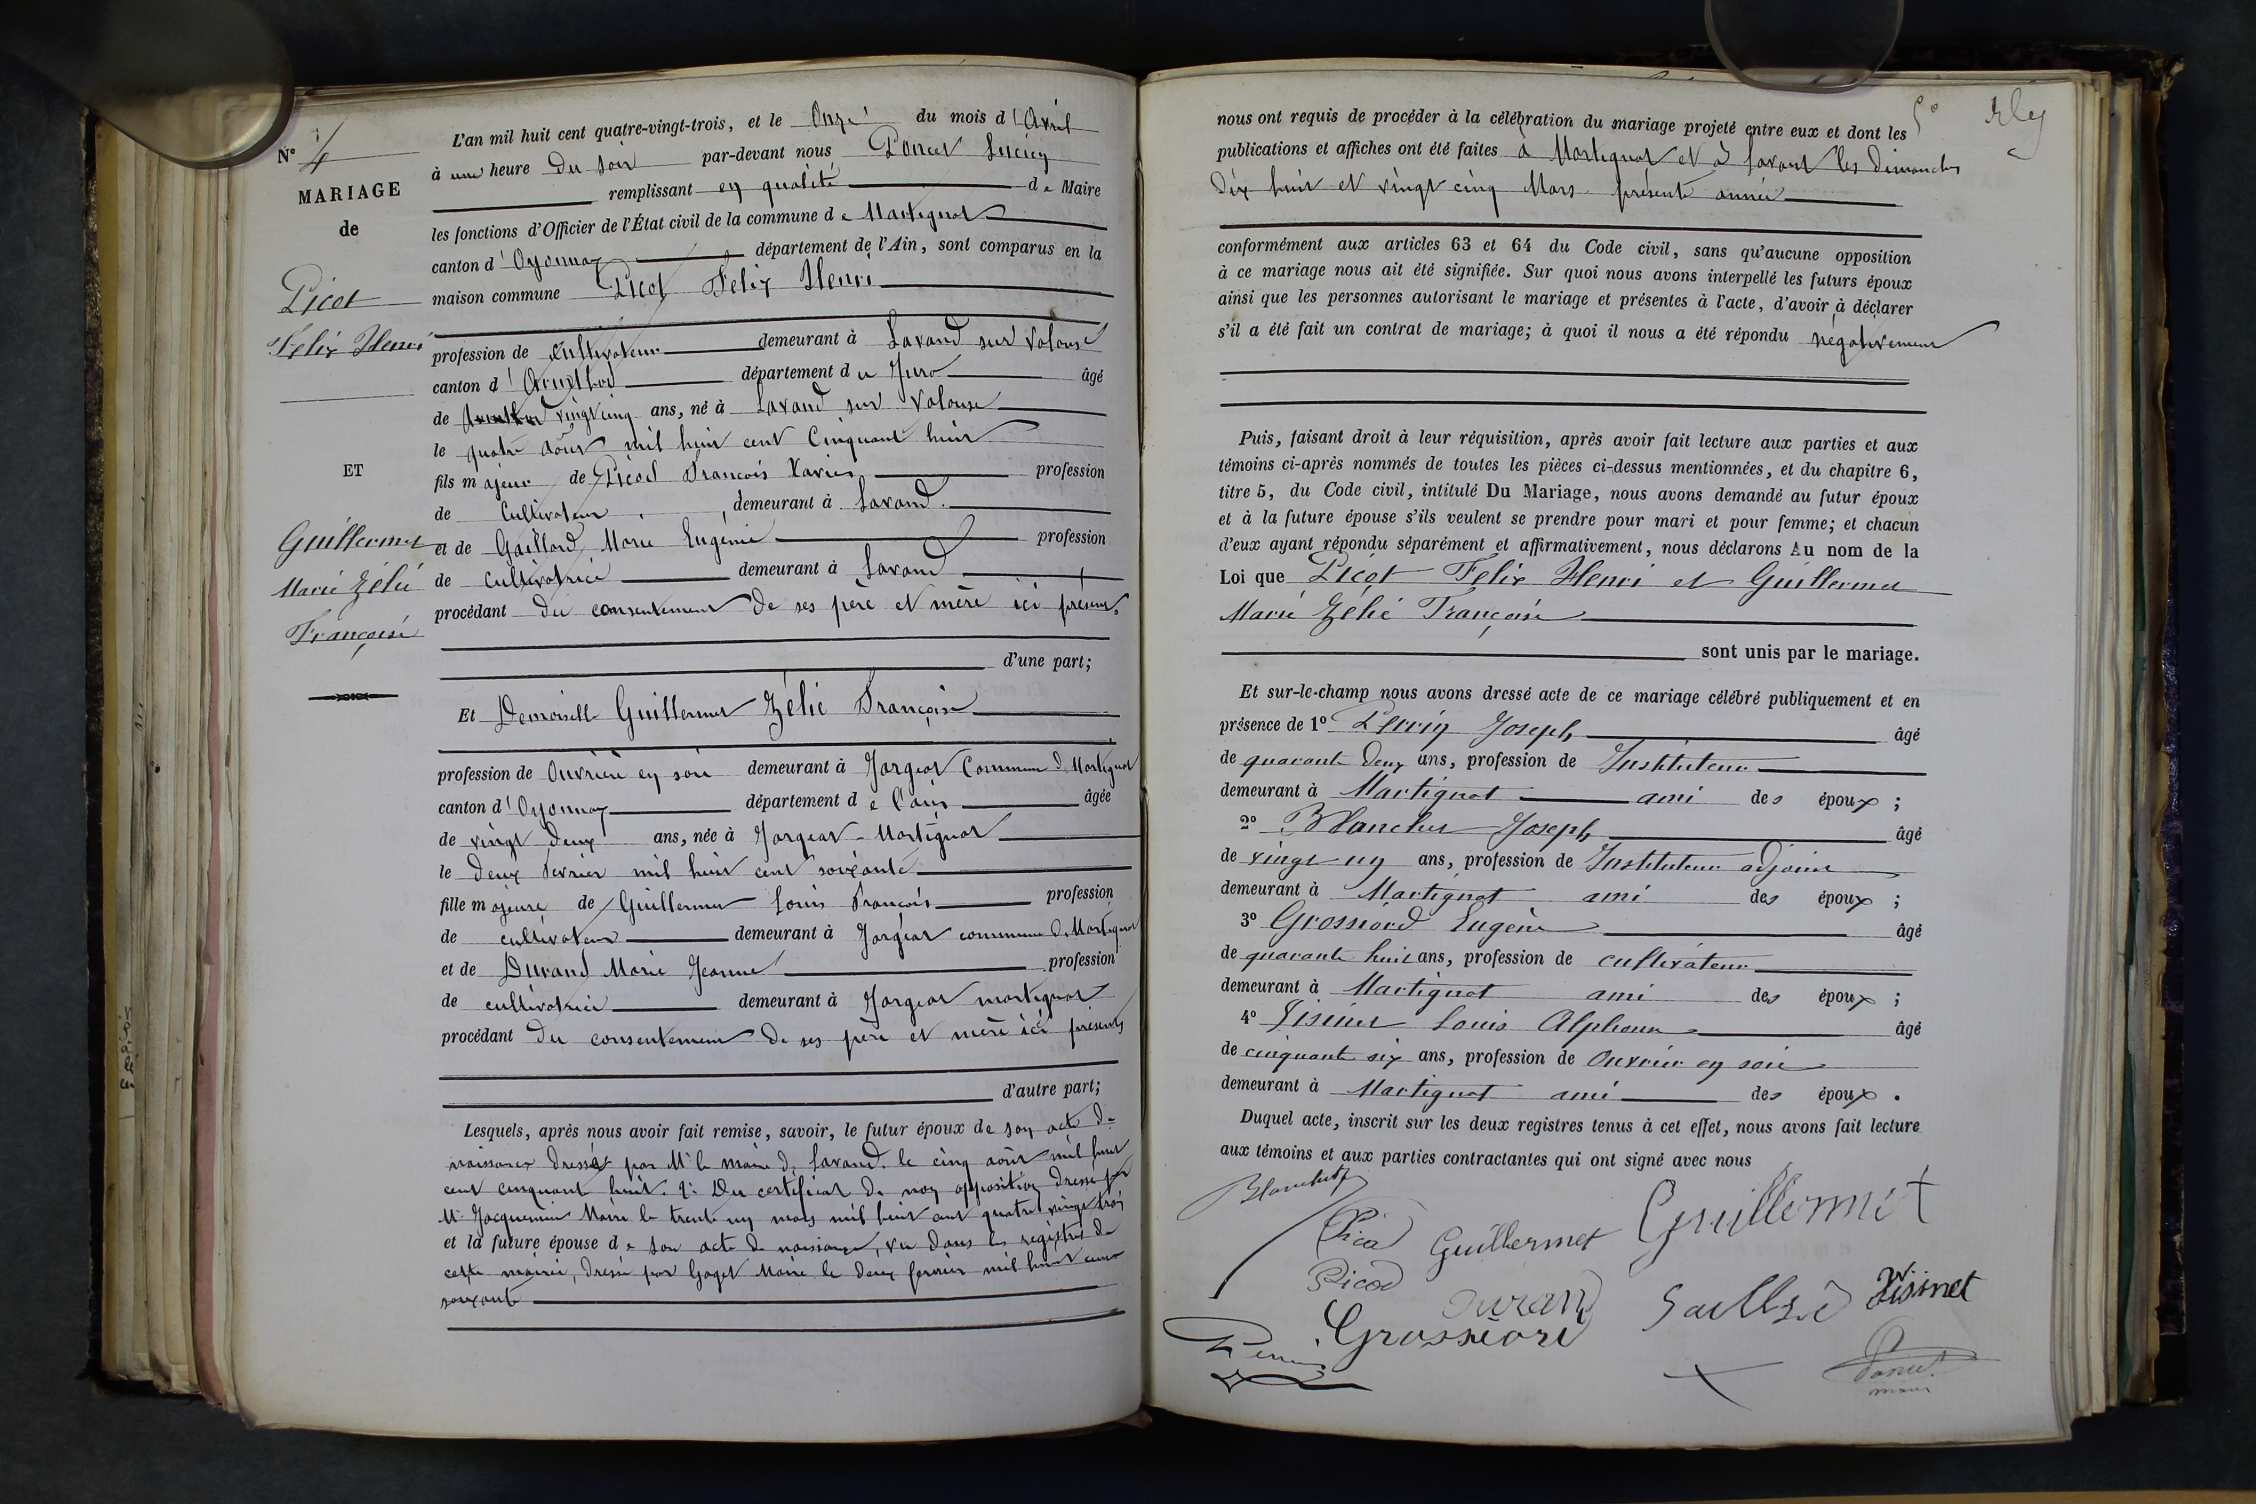 N° 4
MARIAGE
de
Picot
Felix Henri
ET
Guillermet
Marie Zélie
Françoise
L'an mil huit cent quatre-vingt-trois, et le Onze du mois d'Avril
à une heure du soir par-devant nous Poncet Lucien
remplissant en qualité de Maire
les fonctions d'Officier de l'État civil de la commune de Martignat
canton d'Oyonnax département de l'Ain, sont comparus en la
maison commune Picot Felix Henri
profession de cultivateur demeurant à Lavand sur Valouse
canton d'Arinthod département du Jura âgé
de vingt cinq ans, né à Lavand sur Valouse
le quatre août mil huit cent Cinquant huit
fils majeur de Picod François Xavier profession
de Cultivateur demeurant à Lavand.
et de Gaillard Marie Eugénie profession
de cultivatrice demeurant à Lavand
procédant du consentement de ses père et mère ici présents
d'une part;
Et Demoiselle Guillermet Zélie Françoise
profession de Ouvrière en soie demeurant à Jargeat Commune de Martignat
canton d'Oyonnax département de l'ain âgée
de vingt deux ans, née à Jargeat-Martignat
le deux février mil huit cent soixante
fille majeure de Guillermet Louis François profession
de cultivateur demeurant à Jargeat commune de Martignat
et de Durand Marie Jeanne profession
de cultivatrice demeurant à Jargeat martignat
procédant du consentement de ses père et mère ici présents
d'autre part;
Lesquels, après nous avoir fait remise, savoir, le futur époux de son acte de
naissance dressé par Mr le maire de Lavand. le cinq août mil huit
cent cinquant huit. 2° Du certificat de non opposition dressé par
Mr Jacquemin Maire le trente un mars mil huit cent quatre vingt trois
et la future épouse de son acte de naissance, vu dans les registres de
cette mairie, dressé par Goyet Maire le deux fevrier mil huit cent
soixante
nous ont requis de procéder à la célébration du mariage projeté entre eux et dont les
publications et affiches ont été faites à Martignat et à Lavant les dimanches
dix huit et vingt cinq Mars présente année
conformément aux articles 63 et 64 du Code civil, sans qu'aucune opposition
à ce mariage nous ait été signifiée. Sur quoi nous avons interpellé les futurs époux
ainsi que les personnes autorisant le mariage et présentes à l'acte, d'avoir à déclarer
s'il a été fait un contrat de mariage; à quoi il nous a été répondu négativement
Puis, faisant droit à leur réquisition, après avoir fait lecture aux parties et aux
témoins ci-après nommés de toutes les pièces ci-dessus mentionnées, et du chapitre 6,
titre 5, du Code civil, intitulé Du Mariage, nous avons demandé au futur époux
et à la future épouse s'ils veulent se prendre pour mari et pour femme; et chacun
d'eux ayant répondu séparément et affirmativement, nous déclarons Au nom de la
Loi que Picot Felix Henri et Guillermet
Marie Zélie Françoise
sont unis par le mariage.
Et sur-le-champ nous avons dressé acte de ce mariage célébré publiquement et en
présence de 1° Perrin Joseph âgé
de quarante deux ans, profession de Instituteur
demeurant à Martignat ami des époux;
2° Blanchet Joseph âgé
de vingt un ans, profession de Instituteur adjoint
demeurant à Martignat ami des époux;
3° Grossiord Eugène âgé
de quarante huit ans, profession de cultivateur
demeurant à Martignat ami des époux;
4° Visinet Louis Alphonse âgé
de cinquante six ans, profession de Ouvrier en soie
demeurant à Martignat ami des époux.
Duquel acte, inscrit sur les deux registres tenus à cet effet, nous avons fait lecture
aux témoins et aux parties contractantes qui ont signé avec nous
Blanchet
Picod Guillermet Guillermet
Picod Durand Visinet
Grossiord
Perrin
Poncet
maire